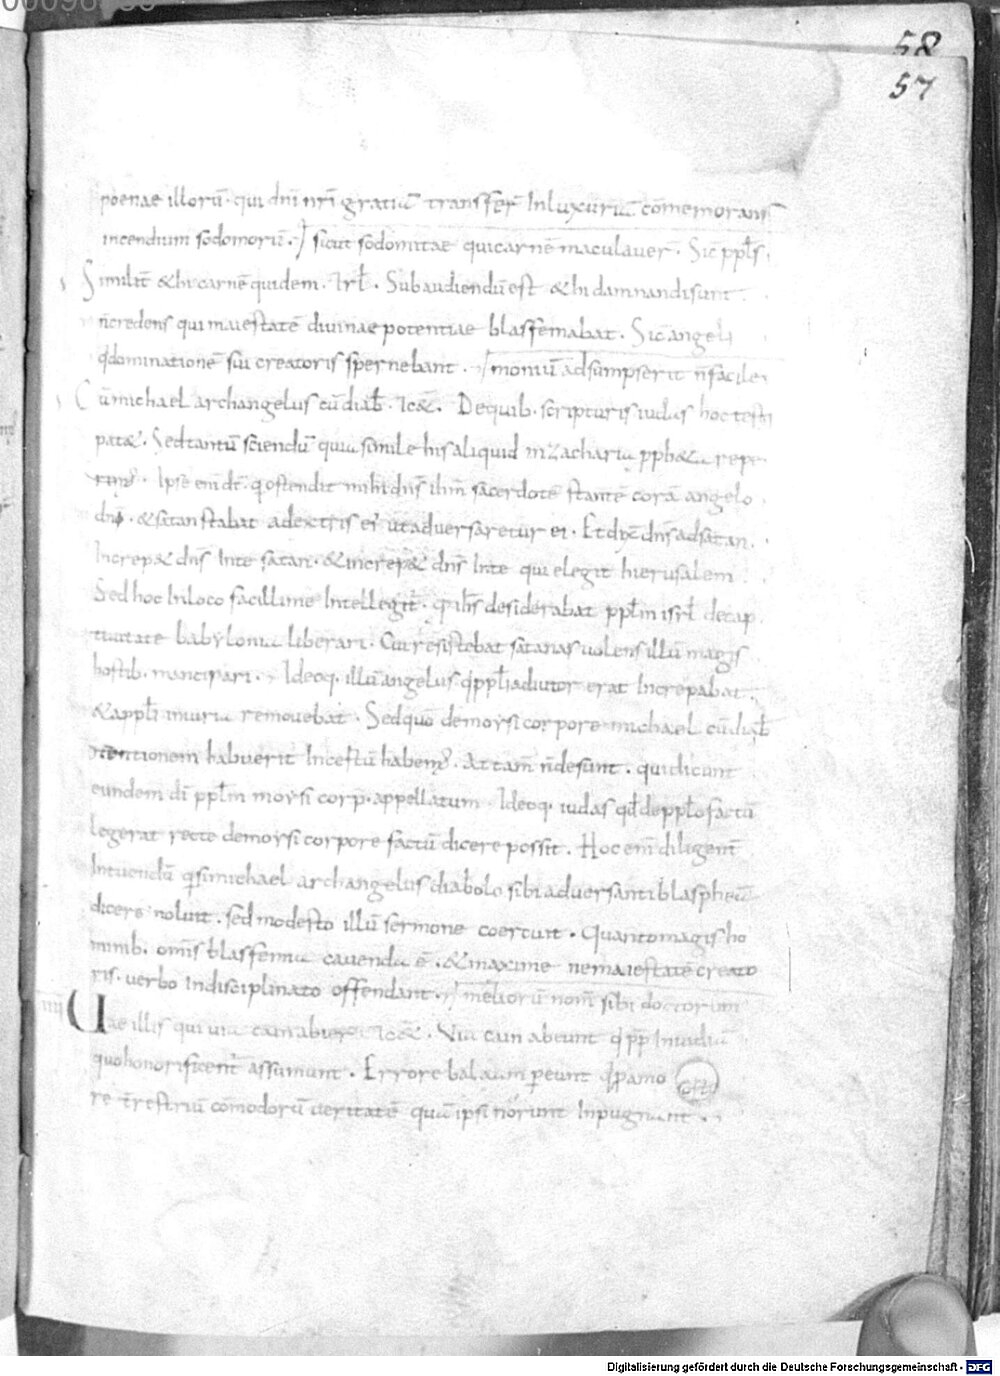 58
57
poenae illorū · qui dn̄i nr̄i gratiā transfer̄ In luxuriā cōmemorans
incendium sodomorū · sicut sodomitae qui carnē maculaver · Sic ppl̄s
Similit̄ & hi carnē quidem · rl̄ · Subaudiendū est & hi damnandi sunt
n̄ credens qui maiestatē divinae potentiae blasfemabat · Sic angeli
qd dominationē sui creatoris spernebant · moniū adsumpserit n̄ facile
Cū michael archangelus cū diab̄ · rc& · De quib · scripturis iudas hoc testi
pat& · Sed tantū sciendū quia simile his aliquid in Zacharia pph&a repe
rim; · Ipse eni dt̄ · q ostendit mihi dn̄s ihm̄ sacerdotē stantē corā angelo
dn̄i · & satan stabat a dextris ei; ut adversaretur ei · Et dx̄ dn̄s ad satan
Increp& dn̄s In te satan · & increp& dn̄s In te qui elegit hierusalem
Sed hoc In loco facillime Intellegit̄ · q ih̄s desiderabat ppl̄m isrl̄ de cap
tivitate babylonia liberari · Cui resistebat satanas volens illū magis
hostib · mancipari · Ideoq · illū angelus q ppl̄i adiutor erat Increpabat
& a ppl̄i iniuria removebat · Sed quo de moysi corpore michael cū diab̄
tentionem habuerit Incertū habem; · At tam̄ n̄ desunt · qui dicunt
eundem dī ppl̄m moysi corp · appellatum Ideoq · iudas qd de pplo factū
legerat recte de moysi corpore factū dicere possit · Hoc em̄ diligent̄
Intuendū q si michael archangelus diabolo sibi adversanti blasphemiā
dicere noluit · sed modesto illū sermone coercuit · Quanto magis ho
minib · om̄is blasfemia cavenda ē · & maxime ne maiestatē creato
ris · verbo Indisciplinato offendant · meliorū nom̄ sibi doctorum
Uae illis qui via cain abier̄ rc& · Via cain abeunt q pp̄ Invidiā
quo honorificent̄ assumunt · Errore balaam pereunt q p amo
re terrestriū cōmodorū veritatē quā ipsi norunt Inpugnant
Digitalisierung gefördert durch die Deutsche Forschungsgemeinschaft - DFG